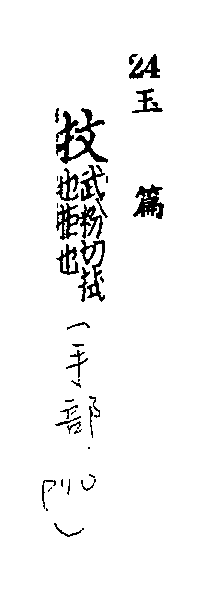 24 玉篇
抆
武粉切拭
也也
(手部.